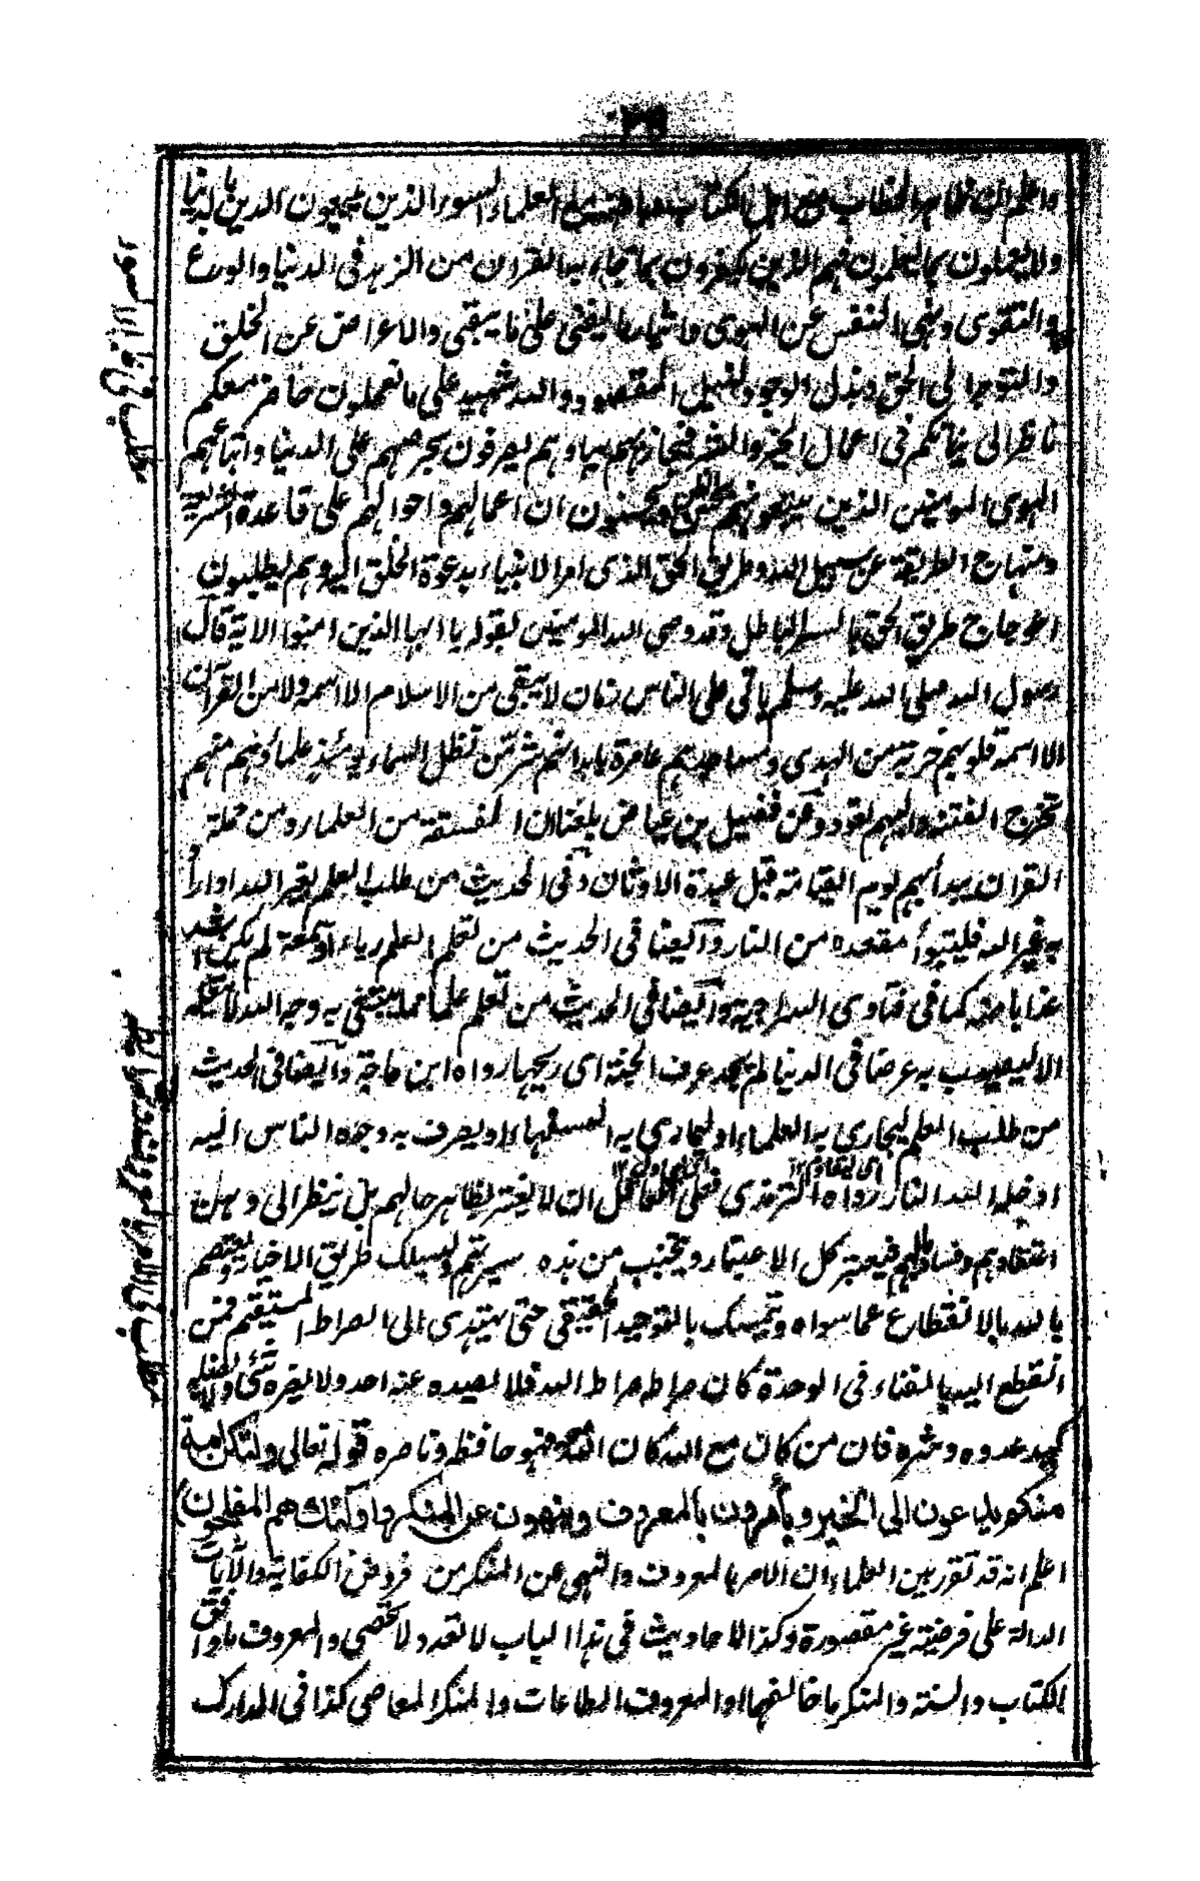 واعلم ان ظاهر الخطاب مع اهل الكتاب وباطنه مع العلماء السوء الذين يبيعون الدين بالدنيا
ولا يعملون بما يعلمون فهم الذين يكفرون بما جاء به القران من الزهد في الدنيا والورع
والتقوى ونهى النفس عن الهوى وايثار ما يفنى على ما يبقى والاعراض عن الخلق
والتوجه الى الحق وبذل الوجود لنيل المقصود والله شهيد على ما تعملون حاضر معكم
ناظر الى نياتكم في اعمال الخير والشر فيجازيهم بها وهم يصرفون بحرصهم على الدنيا واتباعهم
الهوى المومنين الذين يتبعونهم ويحسبون ان اعمالهم واحوالهم على قاعدة الشريعة
ومنهاج الطريقة عن سبيل الله وطريق الحق الذى امر الانبياء بدعوة الخلق اليه وهم يطلبون
اعوجاج طريق الحق بالباطل وقد وصى الله المومنين بقوله يا ايها الذين امنوا الاية قال
رسول الله صلى الله عليه وسلم ياتي على الناس زمان لا يبقى من الاسلام الا اسمه ولا من القرآن
الا رسمه قلوبهم خربة من الهدى ومساجدهم عامرة بابدانهم شر من تظل السماء يومئذ علماؤهم منهم
تخرج الفتنة واليهم تعود وعن فضيل بن عياض بلغنا ان الفسقة من العلماء ومن حملة
القران يبدأ بهم يوم القيامة قبل عبدة الاوثان وفي الحديث من طلب العلم لغير الله او اراد
به غير الله فليتبوأ مقعده من النار وايضا في الحديث من تعلم العلم رياء او سمعة لم يكن اشد
عذابا منه كما في فتاوى السراجية وايضا في الحديث من تعلم علما مما يبتغى به وجه الله لا يتعلمه
الا ليصيب به عرضا في الدنيا لم يجد عرف الجنة اى ريحها رواه ابن ماجة وايضا في الحديث
من طلب العلم ليجاري به العلماء او ليماري به السفهاء او يصرف به وجوه الناس اليه
ادخله الله النار رواه الترمذى فعلى العاقل ان لا يغتر بظاهر حالهم بل ينظر الى وهن
اعتقادهم وفساد فيعتبر كل الاعتبار ويجتنب من هذه سيرتهم ويسلك طريق الاخيار ويعتصم
بالله بالانقطاع عما سواه ويتمسك بالتوحيد الحقيقي حتى يهتدى الى الصراط المستقيم فمن
انقطع اليه بالفناء في الوحدة كان صراطه صراط الله فلا يصده عنه احد ولا يضره شئ ولا يضله
كيد عدوه وشره فان من كان مع الله كان الله معه فهو حافظه وناصره قوله تعالى ولتكن امة
منكم يدعون الى الخير ويأمرون بالمعروف وينهون عن المنكر واولئك هم المفلحون
اعلم انه قد تقرر بين العلماء ان الامر بالمعروف والنهي عن المنكر من فروض الكفاية والآيات
الدالة على فرضيته غير مقصورة وكذا الاحاديث في هذا الباب لا تعد ولا تحصى والمعروف ما وافق
الكتاب والسنة والمنكر ما خالفهما او المعروف الطاعات والمنكر المعاصى كذا في المدارك